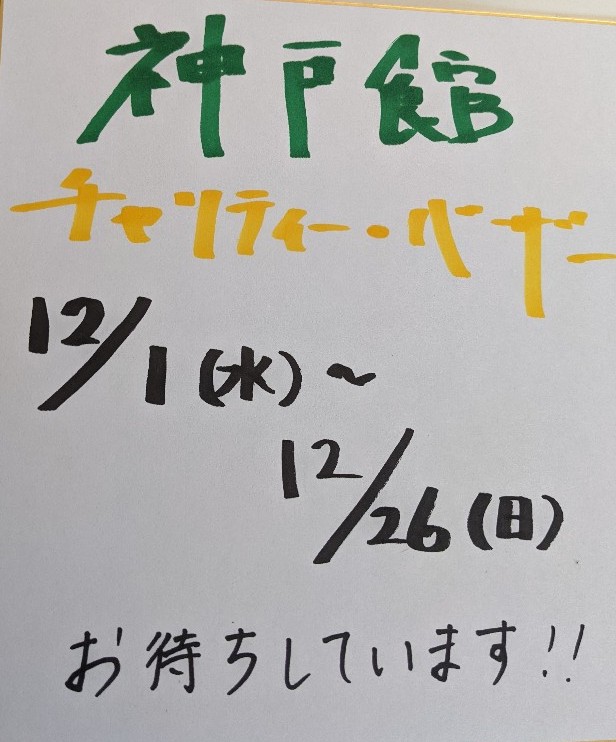 神戸館
チャリティー・バザー
12/1(水)~
12/26(日)
お待ちしています!!